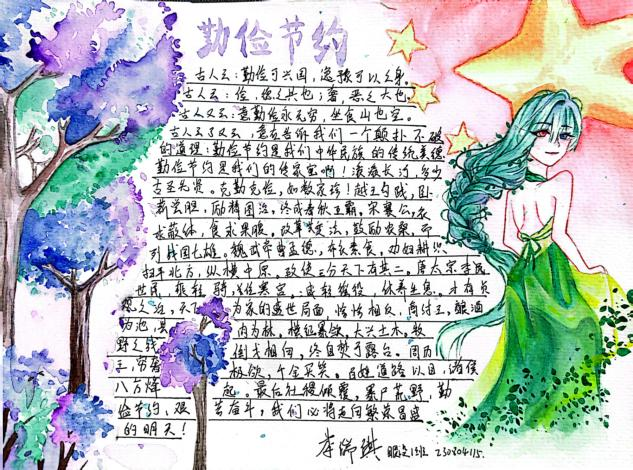 勤俭节约
古人云:勤俭可兴国,逸豫可以亡身。
古人云:俭,德之共也;奢,恶之大也。
古人又云:意勤俭永无穷,坐食山也空。
古人云又云,意在告诉我们一个颠扑不破
的道理:勤俭节约是我们中华民族的传统美德
勤俭节约是我们的传家宝啊!滚滚长河,多少
古圣先贤。克勤克俭,如数家珍!越王勾践,卧
薪尝胆,励精图治,终成春秋王霸。宋襄公,衣
求蔽体,食求果腹。改革变法,鼓励农桑,
列战国七雄。魏武帝曹孟德,布衣素食,
扫平北方,纵横中原。致使三分天下有其二。唐太宗李民
世用,
为家的盛世局面,恰恰相反,商纣王,酿酒
为池,县 肉为林,横征暴敛,大兴土木。牧
野之战 倒戈相向,终自焚于露台。周历
王,穷奢 极欲,千金买笑。百姓道路以目,诸侯
八方烽 起。最后社稷倾覆,暴尸荒野,勤
俭节约,艰 苦奋斗,我们必将走向繁荣昌盛
的明天!
李瑞琪 眼之1班 230804115.